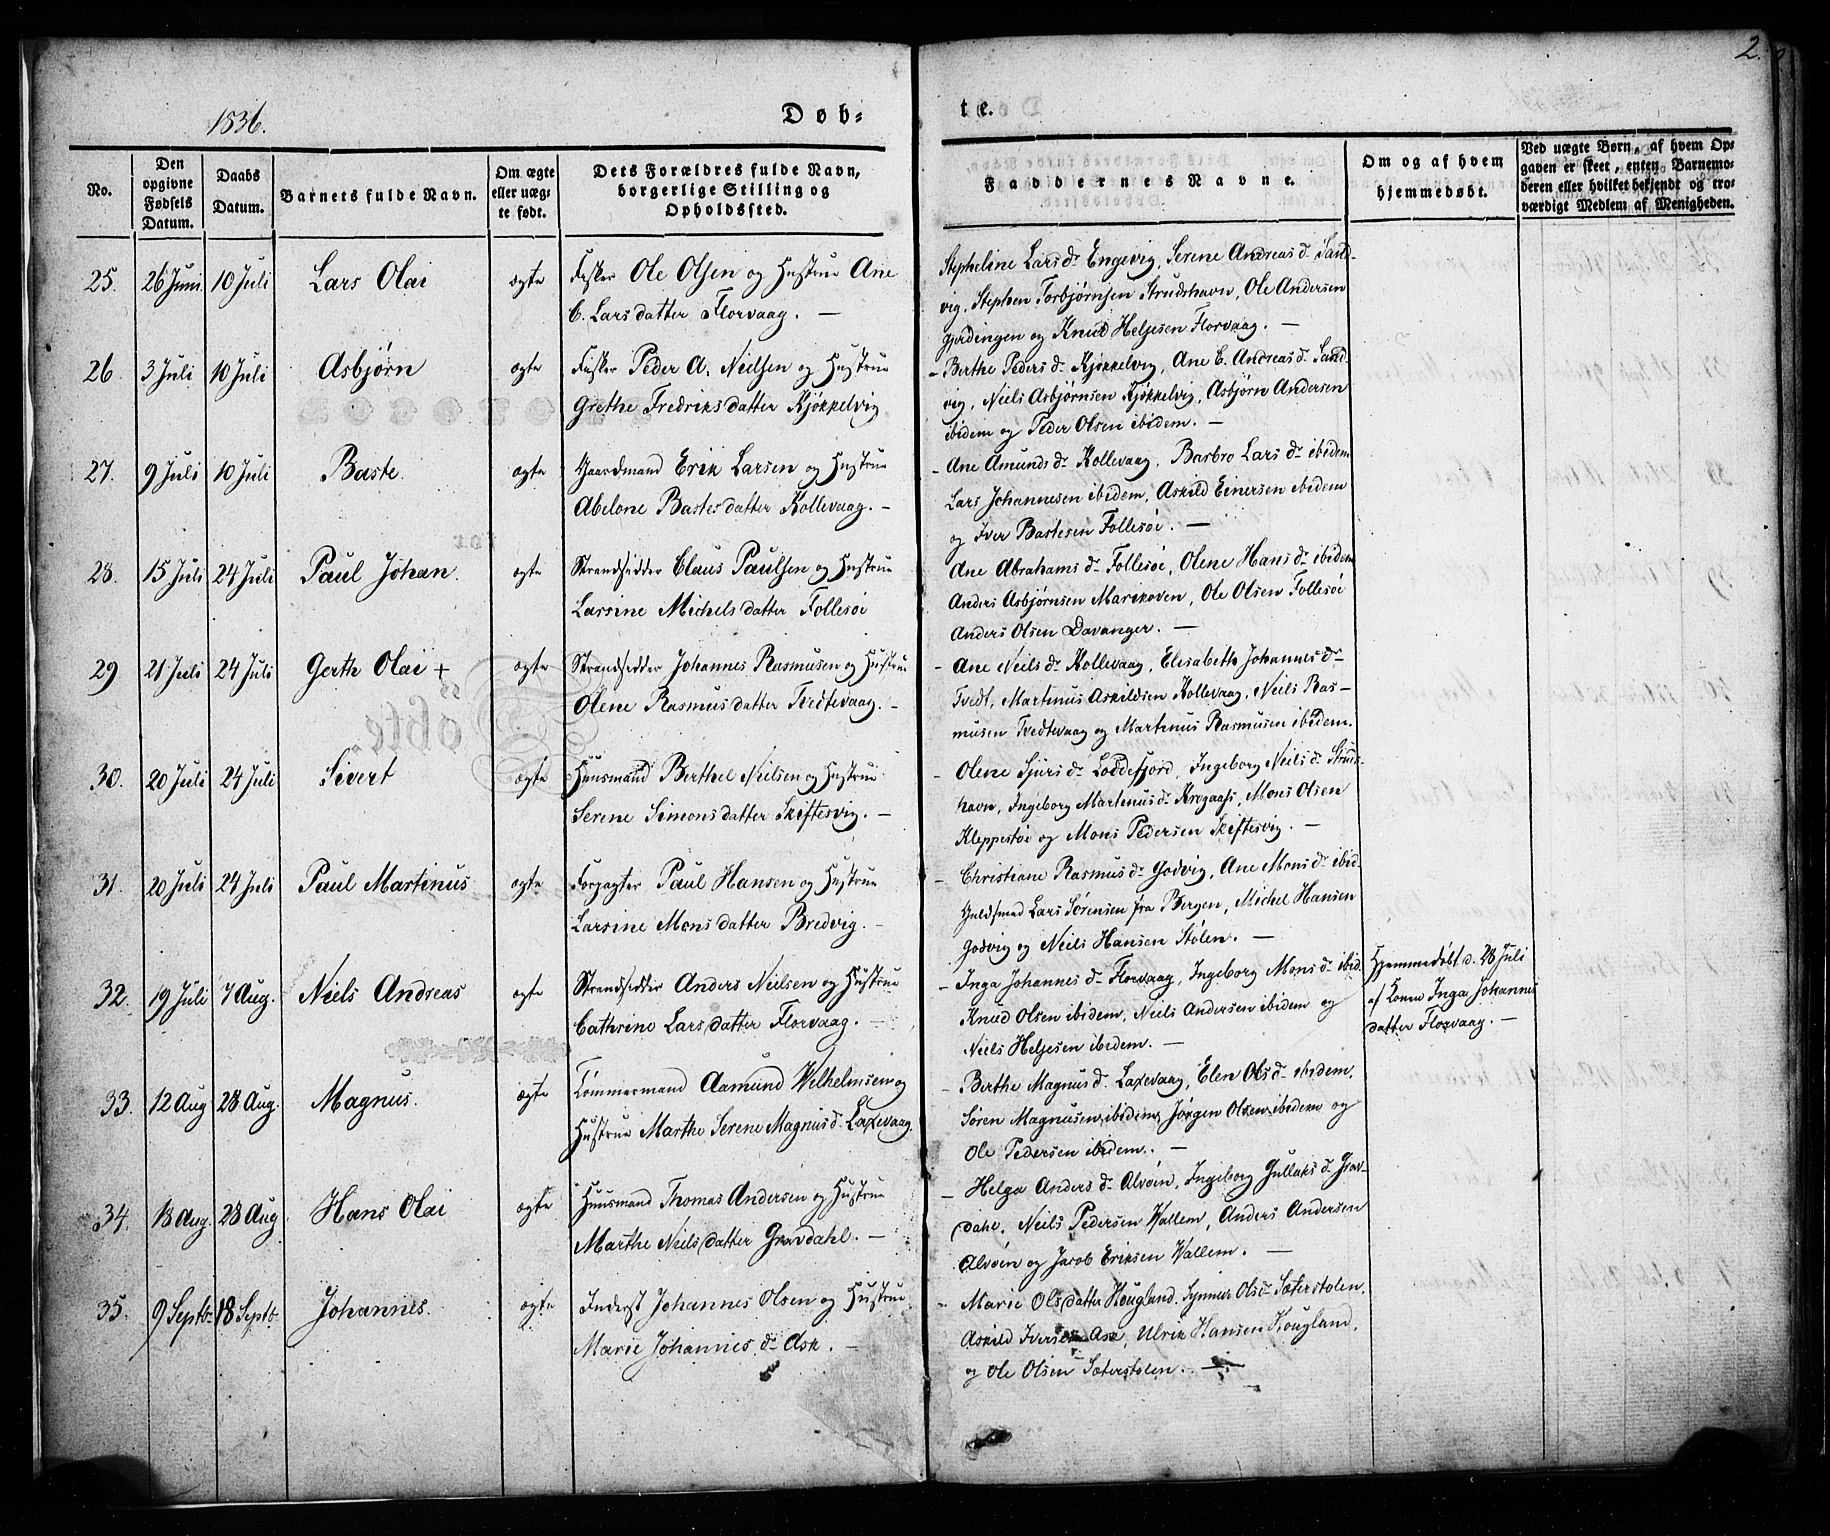 2.
1836.
Døb-
te.
No.
Den opgivne Fødsels Datum.
Daabs Datum.
Barnets fulde Navn.
Om ægte eller uægte født.
Dets Forældres fulde Navn, borgerlige Stilling og Opholdssted.
Faddernes Navne.
Om og af hvem hjemmedøbt.
Ved uægte Børn, af hvem Opgaven er skeet, enten Barnemoderen eller hvilket bekjendt og troværdigt Medlem af Menigheden.
25. 26 Juni 10 Juli Lars Olai ægte Fisker Ole Olsen og Hustrue Ane
C. Larsdatter Florvaag. —
Stepheline Larsd. Engevig, Serene Andreasd. Sand-
vig, Stephen Torbjørnsen Strudshavn, Ole Andersen
Gjerdingen og Knud Heljesen Florvaag. —
26. 3 Juli 10 Juli Asbjørn ægte Fisker Peder A. Nielsen og Hustrue
Grethe Fredriksdatter Kjøkkelvig
- Berthe Pedersd. Kjøkkelvig, Ane E. Andreasd. Sand-
vig, Niels Asbjørnsen Kjøkkelvig, Asbjørn Andersen
ibidem og Peder Olsen ibidem. —
27. 9 Juli 10 Juli Baste. ægte Gaardmand Erik Larsen og Hustrue
Abelone Bastesdatter Kollevaag. —
- Ane Amundsd. Kollevaag, Barbro Larsd. ibidem
Lars Johannesen ibidem, Askild Einersen ibidem
og Iver Bastesen Follesøe. —
28. 15 Juli 24 Juli Paul Johan. ægte Strandsidder Claus Paulsen og Hustrue
Larsine Michelsdatter Follesøe
Ane Abrahamsd. Follesøe, Olene Hansd. ibidem
Anders Asbjørnsen Marikoven, Ole Olsen Follesøe
Anders Olsen Davanger. —
29 21 Juli 24 Juli Gerth Olai + ægte Strandsidder Johannes Rasmusen og Hustrue
Olene Rasmusdatter Tvedtevaag. —
- Ane Nielsd. Kollevaag, Elisabeth Johannesd.
Tvedt, Martinus Askildsen Kollevaag, Niels Ras-
musen Tvedtevaag og Martinus Rasmusen ibidem.
30. 20 Juli 24 Juli Sivert ægte Huusmand Berthel Nielsen og Hustrue
Serene Simonsdatter Skiftesvig. —
- Olene Sjursd. Loddefjord, Ingeborg Nielsd. Struds-
havn, Ingeborg Martinusd. Krogaas, Mons Olsen
Kleppestøe og Mons Pedersen Skiftesvig. —
31. 20 Juli 24 Juli Paul Martinus ægte Forpagter Paul Hansen og Hustrue
Larsine Monsdatter Bredvig. —
- Christiane Rasmusd. Godvig, Ane Monsd. ibid.
Guldsmed Lars Sørensen fra Bergen, Michel Hansen
Godvig og Niels Hansen Stølen. —
32. 19 Juli 7 Aug. Niels Andreas ægte Strandsidder Anders Nielsen og Hustrue
Cathrine Larsdatter Florvaag. —
- Inga Johannesd. Florvaag, Ingeborg Monsd. ibid.
Knud Olsen ibidem, Niels Andersen ibidem og
Niels Heljesen ibidem. —
Hjemmedøbt d. 28 Juli
af Konen Inga Johannis
datter Florvaag. —
33. 12 Aug 28 Aug. Magnus. ægte Tømmermand Aamund Wilhelmsen og
Hustrue Marthe Serene Magnusd. Laxevaag.
- Berthe Magnusd. Laxevaag, Elen Olsd. ibidem,
Søren Magnusen ibidem, Jørgen Olsen ibidem og
Ole Pedersen ibidem. —
34. 18 Aug. 28 Aug Hans Olai ægte Huusmand Thomas Andersen og Hustrue
Marthe Nielsdatter Gravdahl. —
- Helga Andersd. Alvøen, Ingeborg Gullaksd. Grav-
dahl, Niels Pedersen Wallem, Anders Andersen
Alvøen og Jacob Eriksen Wallem. —
35. 9 Septb. 18 Septb. Johannes. ægte Inderst Johannes Olsen og Hustrue
Marie Johannesd. Ask. —
- Marie Olsdatter Hougland, Synneve Olsd. Sæterstølen,
Askild Iversen Ask, Ulrik Hansen Hougland,
og Ole Olsen Sæterstølen. —